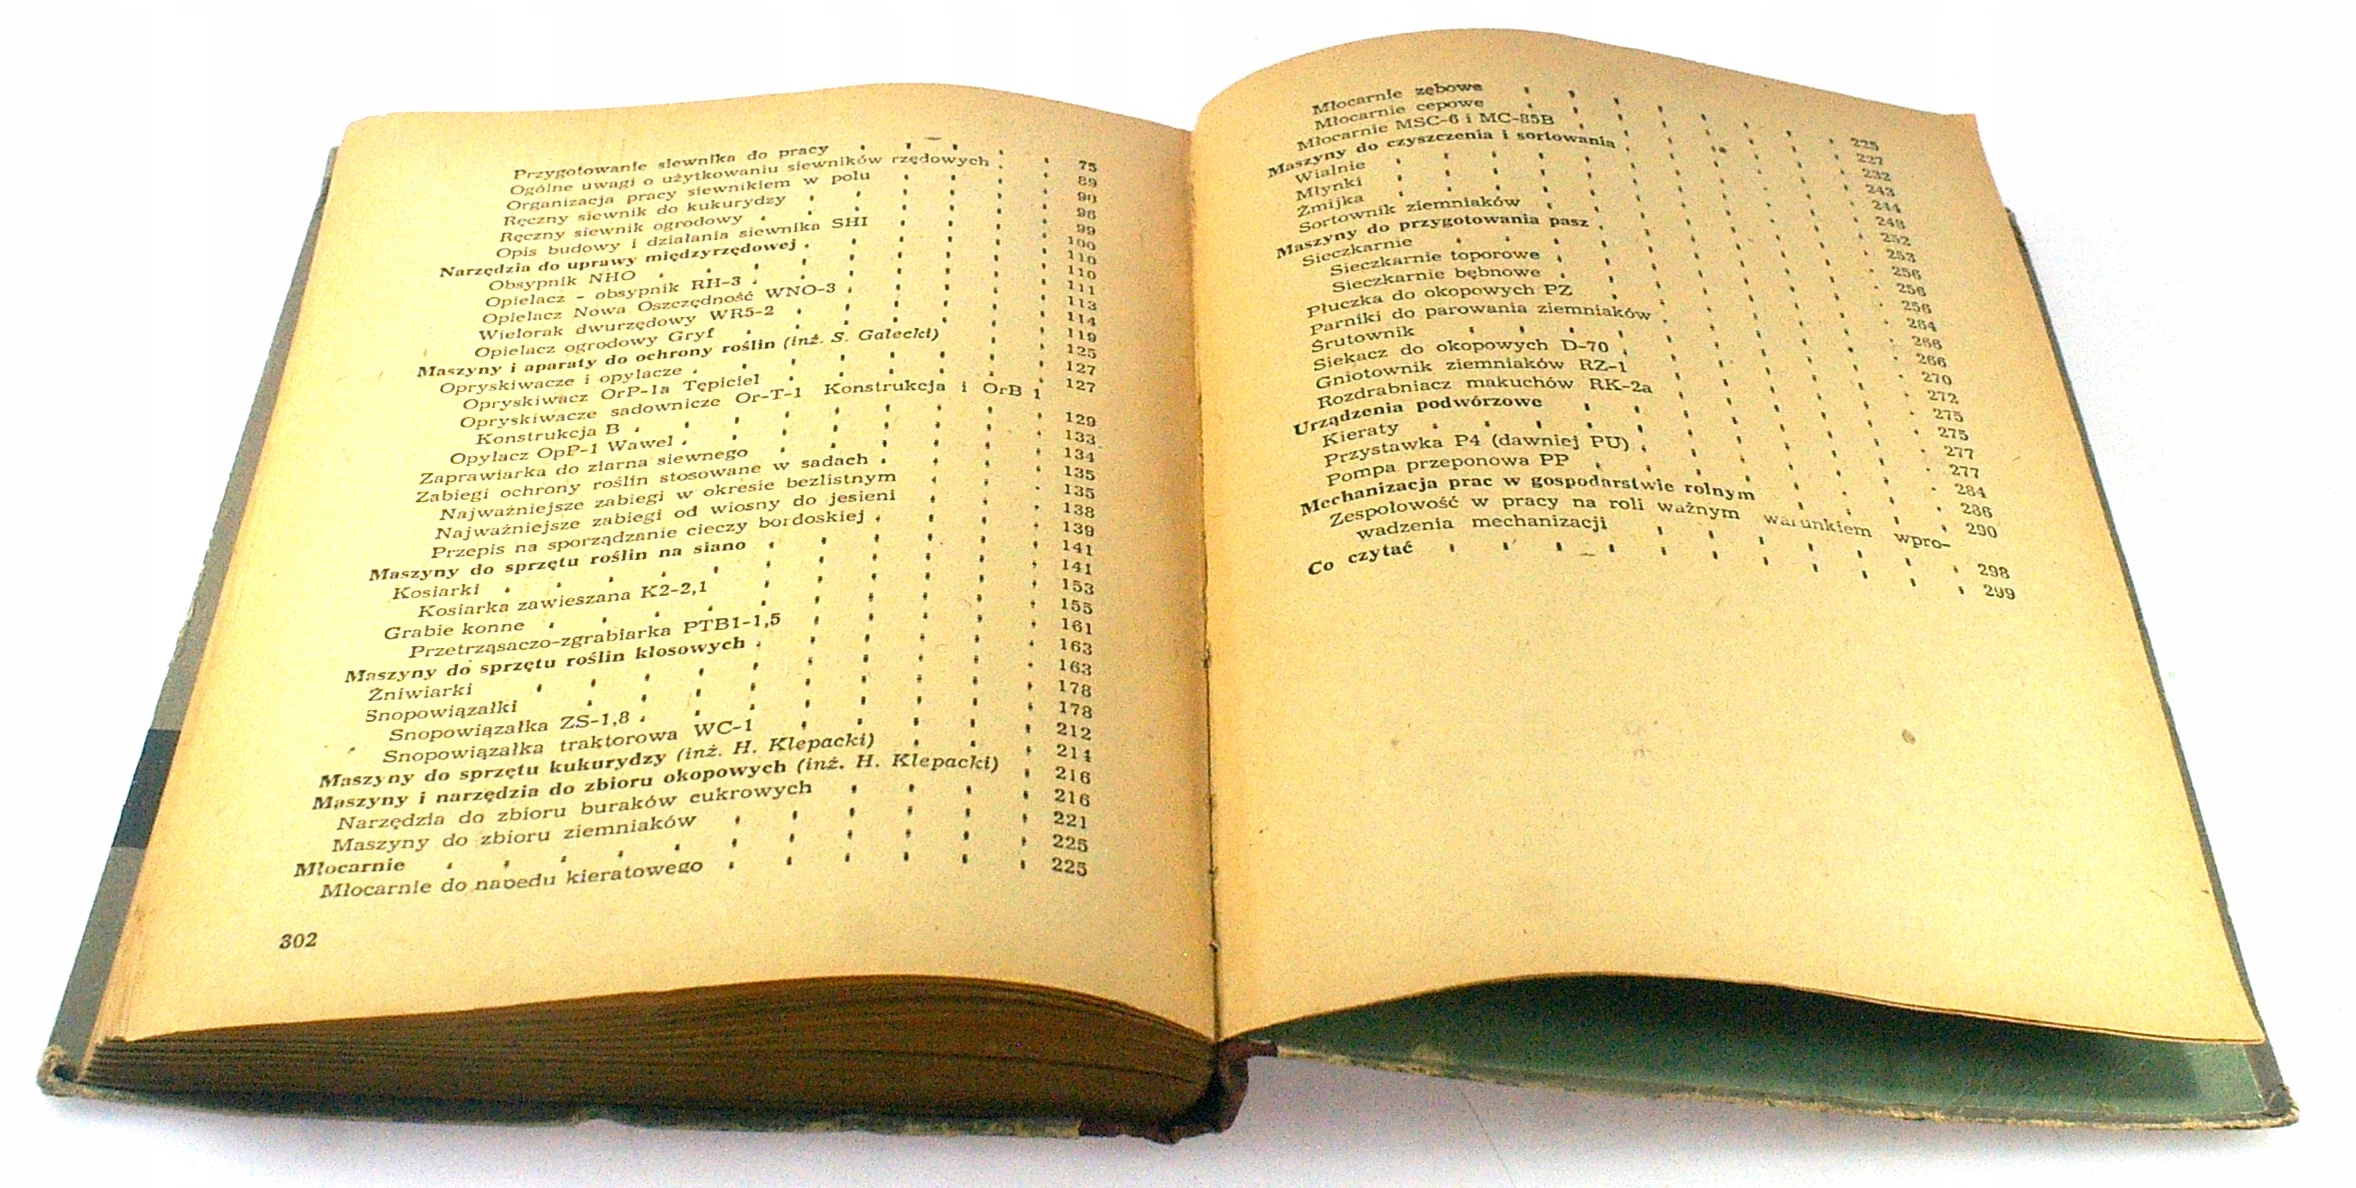 Przygotowanie siewnika do pracy . . . . . 75
Ogólne uwagi o użytkowaniu siewników rzędowych . 89
Organizacja pracy siewnikiem w polu . . . . 90
Ręczny siewnik do kukurydzy . . . . . 96
Ręczny siewnik ogrodowy . . . . . . 99
Opis budowy i działania siewnika SHI . . . . 100
Narzędzia do uprawy międzyrzędowej . . . . . 110
Obsypnik NHO . . . . . . . . 110
Opielacz - obsypnik RH-3 . . . . . . 111
Opielacz Nowa Oszczędność WNO-3 . . . . 113
Wielorak dwurzędowy WR5-2 . . . . . 114
Opielacz ogrodowy Gryf . . . . . . 119
Maszyny i aparaty do ochrony roślin (inż. S. Gałecki) . . 125
Opryskiwacze i opylacze . . . . . . . 127
Opryskiwacz OrP-1a Tępiciel . . . . . 127
Opryskiwacze sadownicze Or-T-1 Konstrukcja i OrB 1
Konstrukcja B . . . . . . . . 129
Opylacz OpP-1 Wawel . . . . . . . 133
Zaprawiarka do ziarna siewnego . . . . . 134
Zabiegi ochrony roślin stosowane w sadach . . . . 135
Najważniejsze zabiegi w okresie bezlistnym . . . 135
Najważniejsze zabiegi od wiosny do jesieni . . . 138
Przepis na sporządzanie cieczy bordoskiej . . . . 139
Maszyny do sprzętu roślin na siano . . . . . . 141
Kosiarki . . . . . . . . . . 141
Kosiarka zawieszana K2-2,1 . . . . . . 153
Grabie konne . . . . . . . . . 155
Przetrząsaczo-zgrabiarka PTB1-1,5 . . . . . 161
Maszyny do sprzętu roślin kłosowych . . . . . . 163
Żniwiarki . . . . . . . . . . 163
Snopowiązałki . . . . . . . . . 178
Snopowiązałka ZS-1,8 . . . . . . . . 178
Snopowiązałka traktorowa WC-1 . . . . . 212
Maszyny do sprzętu kukurydzy (inż. H. Klepacki) . . . 214
Maszyny i narzędzia do zbioru okopowych (inż. H. Klepacki) . 216
Narzędzia do zbioru buraków cukrowych . . . . 216
Maszyny do zbioru ziemniaków . . . . . . 221
Młocarnie . . . . . . . . . . . 225
Młocarnie do napędu kieratowego . . . . . . 225
302
Młocarnie zębowe . . . . . . . . 225
Młocarnie cepowe . . . . . . . . 227
Młocarnie MSC-6 i MC-85B . . . . . . 232
Maszyny do czyszczenia i sortowania . . . . . . 243
Wialnie . . . . . . . . . . 244
Młynki . . . . . . . . . . 248
Żmijka . . . . . . . . . . 252
Sortownik ziemniaków . . . . . . . 253
Maszyny do przygotowania pasz . . . . . . . 256
Sieczkarnie . . . . . . . . . . 256
Sieczkarnie toporowe . . . . . . . 256
Sieczkarnie bębnowe . . . . . . . 264
Płuczka do okopowych PZ . . . . . . . 266
Parniki do parowania ziemniaków . . . . . . 266
Śrutownik . . . . . . . . . . 270
Siekacz do okopowych D-70 . . . . . . . 272
Gniotownik ziemniaków RZ-1 . . . . . . 275
Rozdrabniacz makuchów RK-2a . . . . . . 275
Urządzenia podwórzowe . . . . . . . . 277
Kieraty . . . . . . . . . . 277
Przystawka P4 (dawniej PU) . . . . . . 284
Pompa przeponowa PP . . . . . . . 286
Mechanizacja prac w gospodarstwie rolnym . . . . 290
Zespołowość w pracy na roli ważnym warunkiem wpro-
wadzenia mechanizacji . . . . . . . 298
Co czytać . . . . . . . . . . . 299